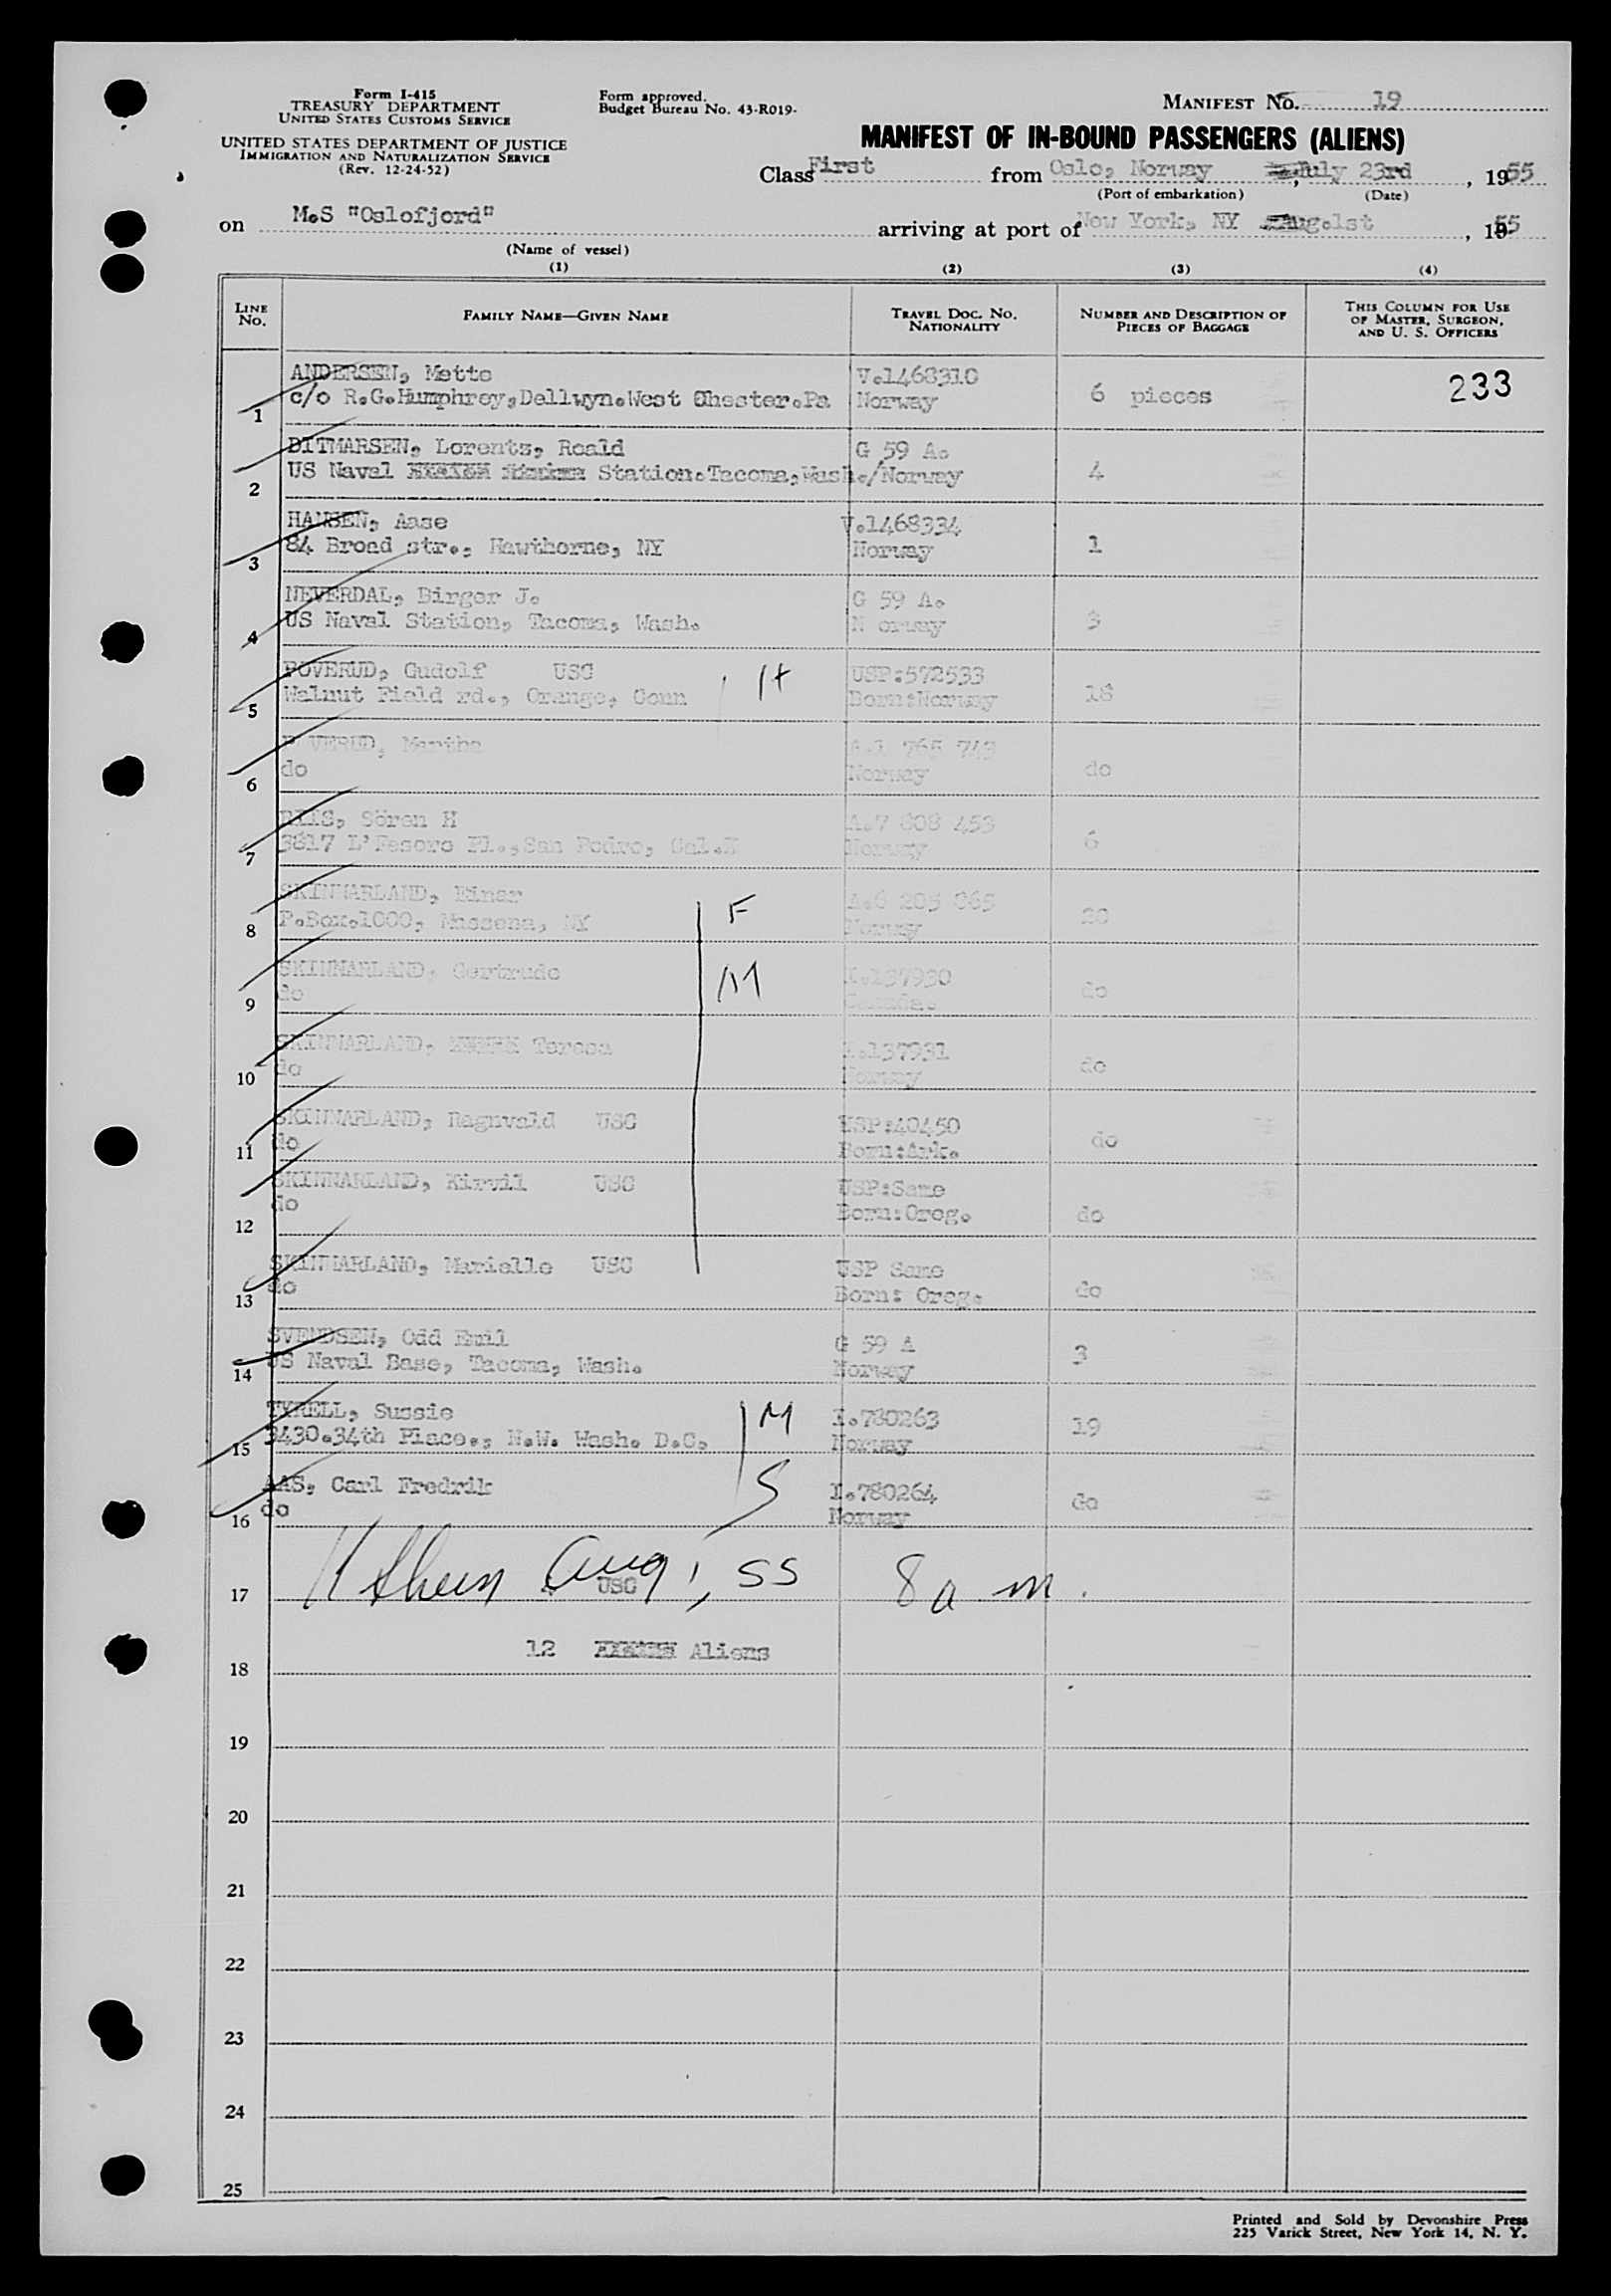 Form I-415
TREASURY DEPARTMENT
UNITED STATES CUSTOMS SERVICE
UNITED STATES DEPARTMENT OF JUSTICE
IMMIGRATION AND NATURALIZATION SERVICE
(Rev. 12-24-52)
Form approved.
Budget Bureau No. 43-R019-
MANIFEST No. 19
MANIFEST OF IN-BOUND PASSENGERS (ALIENS)
Class First from Oslo, Norway, July 23rd, 1955
(Port of embarkation) (Date)
on M.S "Oslofjord" arriving at port of New York, NY Aug.1st, 1955
(Name of vessel)
(1) (2) (3) (4)
LINE No. FAMILY NAME—GIVEN NAME TRAVEL DOC. NO. NATIONALITY NUMBER AND DESCRIPTION OF PIECES OF BAGGAGE THIS COLUMN FOR USE OF MASTER, SURGEON, AND U. S. OFFICERS
ANDERSEN, Mette V.1468310
1 c/o R.G.Humphrey,Dellwyn.West Chester.Pa Norway 6 pieces 233
DITMARSEN, Lorentz, Roald G 59 A.
2 US Naval Station.Tacoma,Wash./Norway 4
HANSEN, Aase V.1468334
3 84 Broad str., Hawthorne, NY Norway 1
NEVERDAL, Birger J. G 59 A.
4 US Naval Station, Tacoma, Wash. N orway 3
POVERUD, Gudolf USC USP:572533
5 Walnut Field rd., Orange, Conn Born:Norway 18
P VERUD, Martha A.1 765 743
6 do Norway do
RIIS, Sören H A.7 808 453
7 3817 L'Tesoro Pl.,San Pedro, Cal. Norway 6
SKINNARLAND, Einar F A.6 205 065
8 P.Box.1000, Massena, NY Norway 20
SKINNARLAND, Gertrude M I.137930
9 do Canada. do
SKINNARLAND, Teresa I.137931
10 do Norway do
SKINNARLAND, Ragnvald USC USP:40450
11 do Born:Ark. do
SKINNARLAND, Kirvil USC USP:Same
12 do Born:Oreg. do
SKINNARLAND, Marielle USC USP Same
13 do Born: Oreg. do
SVENDSEN, Odd Emil G 59 A
14 US Naval Base, Tacoma, Wash. Norway 3
TYRELL, Sussie M I.780263
15 3430.34th Place., N.W. Wash. D.C. Norway 19
AAS, Carl Fredrik S I.780264
16 do Norway do
17 Aug 1, 55 8 a m.
USC
18 12 Aliens
19
20
21
22
23
24
25
Printed and Sold by Devonshire Press
225 Varick Street, New York 14, N. Y.